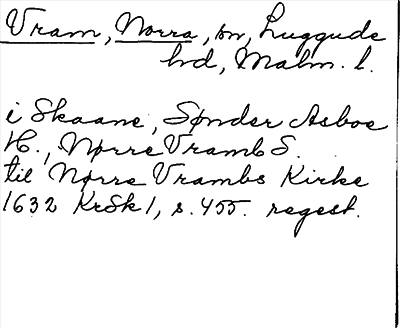 Vram, Norra, sn, Luggude
hd, Malm. l.
i Skaane, Sønder Asboe
H., Nørre Vramb S.
til Nørre Vrambs Kirke
1632 KrSk 1, s. 455. regest.